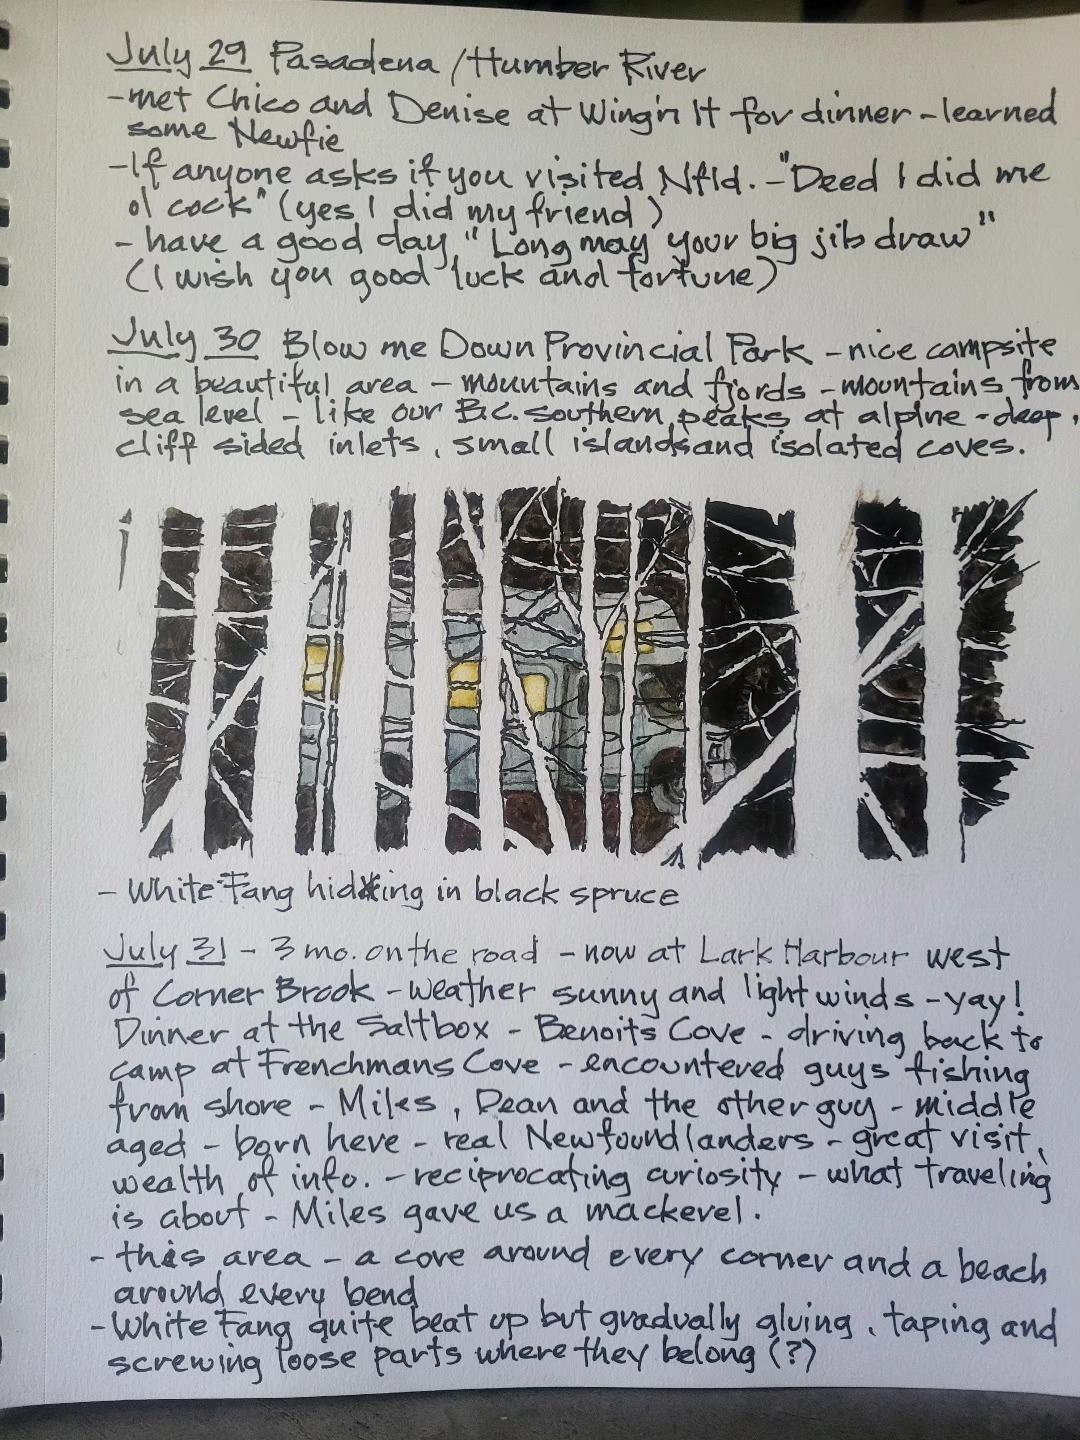 July 29 Pasadena/Humber River
-met Chico and Denise at Wing'n It for dinner - learned
some Newfie
-If anyone asks if you visited Nfld. - "Deed I did me
ol cock" (yes I did my friend)
- have a good day "Long may your big jib draw"
(I wish you good luck and fortune)
July 30 Blow me Down Provincial Park - nice campsite
in a beautiful area - mountains and fjords - mountains from
sea level - like our B.C. southern peaks at alpine - deep,
cliff sided inlets, small islands and isolated coves.
- White Fang hiding in black spruce
July 31 - 3 mo. on the road - now at Lark Harbour west
of Corner Brook - weather sunny and light winds - yay!
Dinner at the Saltbox - Benoits Cove - driving back to
camp at Frenchmans Cove - encountered guys fishing
from shore - Miles, Dean and the other guy - middle
aged - born here - real Newfoundlanders - great visit,
wealth of info. - reciprocating curiosity - what traveling
is about - Miles gave us a mackerel.
- this area - a cove around every corner and a beach
around every bend
- White Fang quite beat up but gradually gluing, taping and
screwing loose parts where they belong (?)